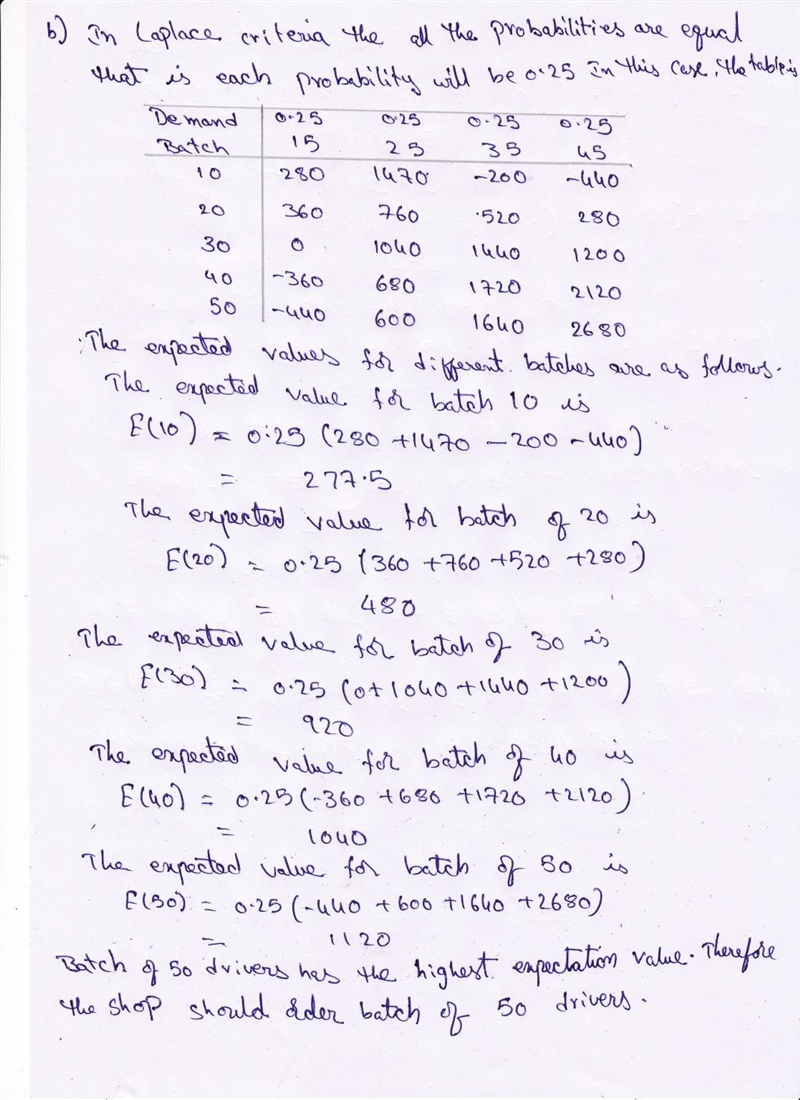 b) In Laplace criteria the all the probabilities are equal
that is each probability will be 0.25 In this case, the table is
Demand 0.25 0.25 0.25 0.25
Batch 15 25 35 45
10 280 1470 -200 -440
20 360 760 520 280
30 0 1040 1440 1200
40 -360 680 1720 2120
50 -440 600 1640 2680
The expected values for different batches are as follows.
The expected value for batch 10 is
E(10) = 0.25 (280 +1470 - 200 - 440)
= 277.5
The expected value for batch of 20 is
E(20) = 0.25 (360 +760 +520 +280)
= 480
The expected value for batch of 30 is
E(30) = 0.25 (0+1040 +1440 +1200)
= 920
The expected value for batch of 40 is
E(40) = 0.25 (-360 +680 +1720 +2120)
= 1040
The expected value for batch of 50 is
E(50) = 0.25 (-440 + 600 +1640 +2680)
= 1120
Batch of 50 drivers has the highest expectation value. Therefore
the shop should order batch of 50 drivers.